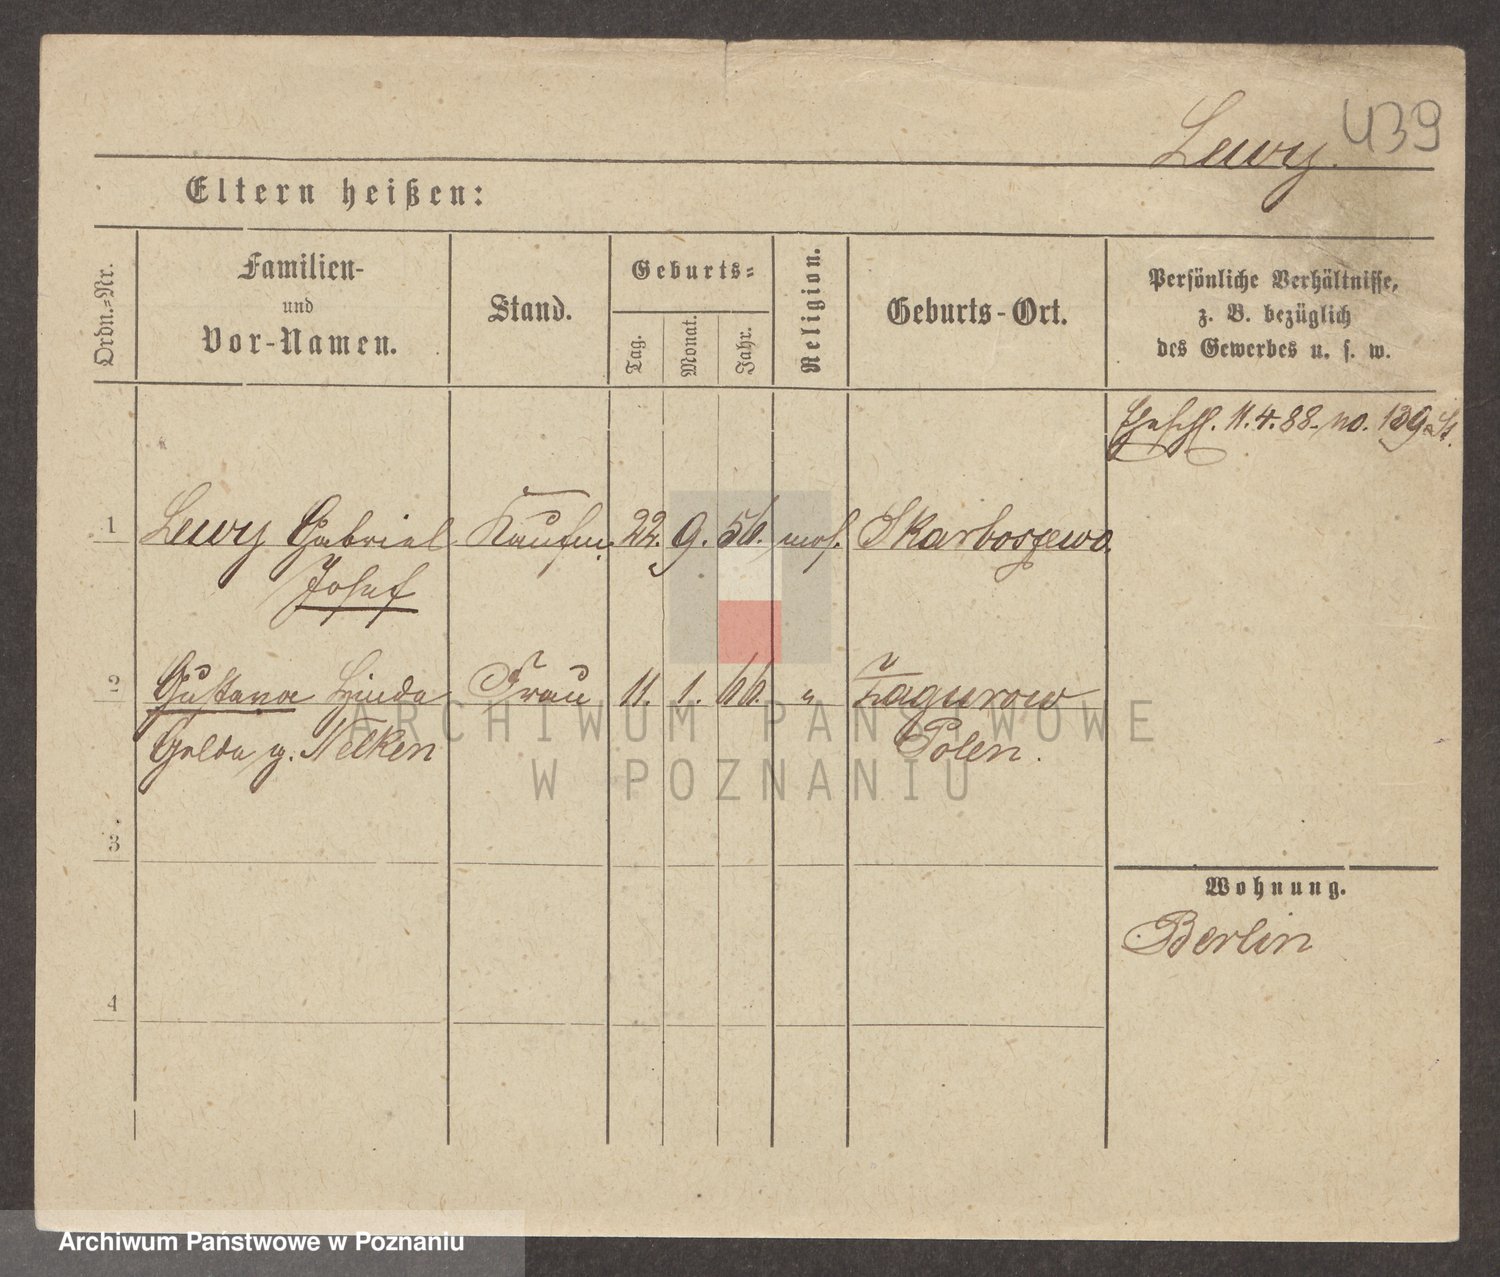 439
Lewy.
Eltern heißen:
Ordn.-Nr.
Familien-
und
Vor-Namen.
Stand.
Geburts-
Tag.
Monat.
Jahr.
Religion.
Geburts-Ort.
Persönliche Verhältnisse,
z. B. bezüglich
des Gewerbes u. s. w.
Eheschl. 11.4.88. no. 139
1 Lewy Gabriel Kaufm. 22. 9. 56. mos. Skarboszewo.
Josef
2 Gustava Hinda Frau 11. 1. 66. " Zagurow
Golda g. Nelken Polen.
3
Wohnung.
Berlin
4
ARCHIWUM PAŃSTWOWE
W POZNANIU
Archiwum Państwowe w Poznaniu